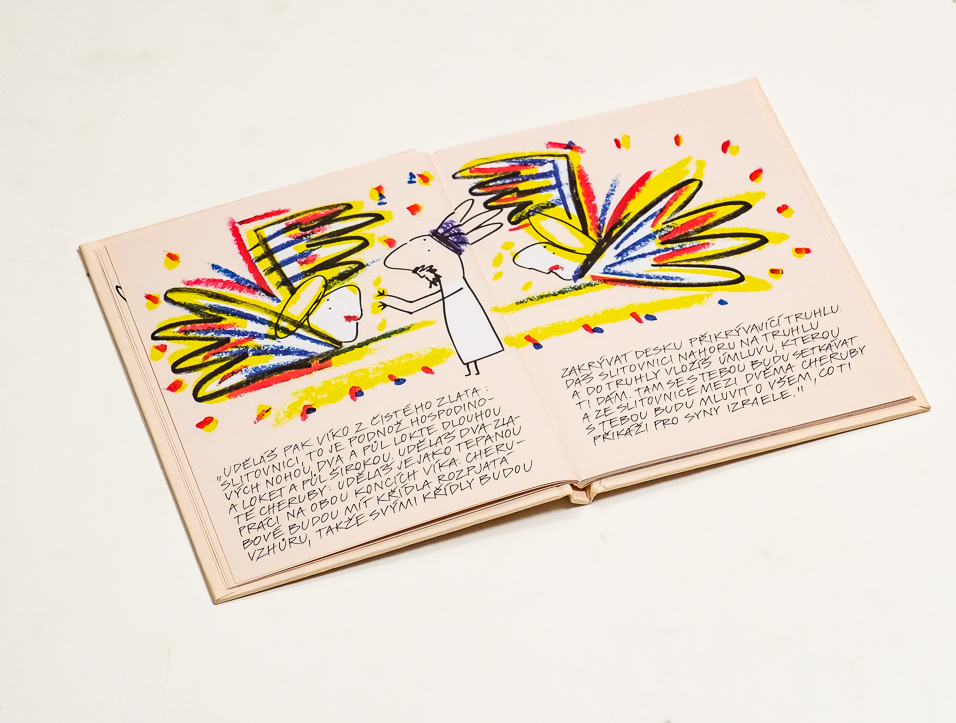 UDĚLÁŠ PAK VÍKO Z ČISTÉHO ZLATA:
"SLITOVNICI, TO JE PODNOŽ HOSPODINO-
VÝCH NOHOU, DVA A PŮL LOKTE DLOUHOU
A LOKET A PŮL ŠIROKOU. UDĚLÁŠ DVA ZLA-
TÉ CHERUBY: UDĚLÁŠ JE JAKO TEPANOU
PRÁCI NA OBOU KONCÍCH VÍKA. CHERU-
BOVÉ BUDOU MÍT KŘÍDLA ROZPJATÁ
VZHŮRU, TAKŽE SVÝMI KŘÍDLY BUDOU
ZAKRÝVAT DESKU PŘIKRÝVAJÍCÍ TRUHLU.
DÁŠ SLITOVNICI NAHORU NA TRUHLU
A DO TRUHLY VLOŽÍŠ ÚMLUVU, KTEROU
TI DÁM. TAM SE S TEBOU BUDU SETKÁVAT
A ZE SLITOVNICE MEZI DVĚMA CHERUBY
S TEBOU BUDU MLUVIT O VŠEM, CO TI
PŘIKÁŽI PRO SYNY IZRAELE."